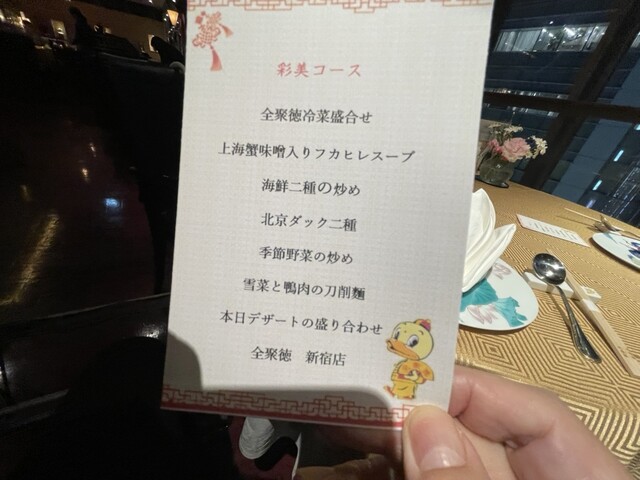 彩美コース
全聚徳冷菜盛合せ
上海蟹味噌入りフカヒレスープ
海鮮二種の炒め
北京ダック二種
季節野菜の炒め
雪菜と鴨肉の刀削麺
本日デザートの盛り合わせ
全聚徳 新宿店